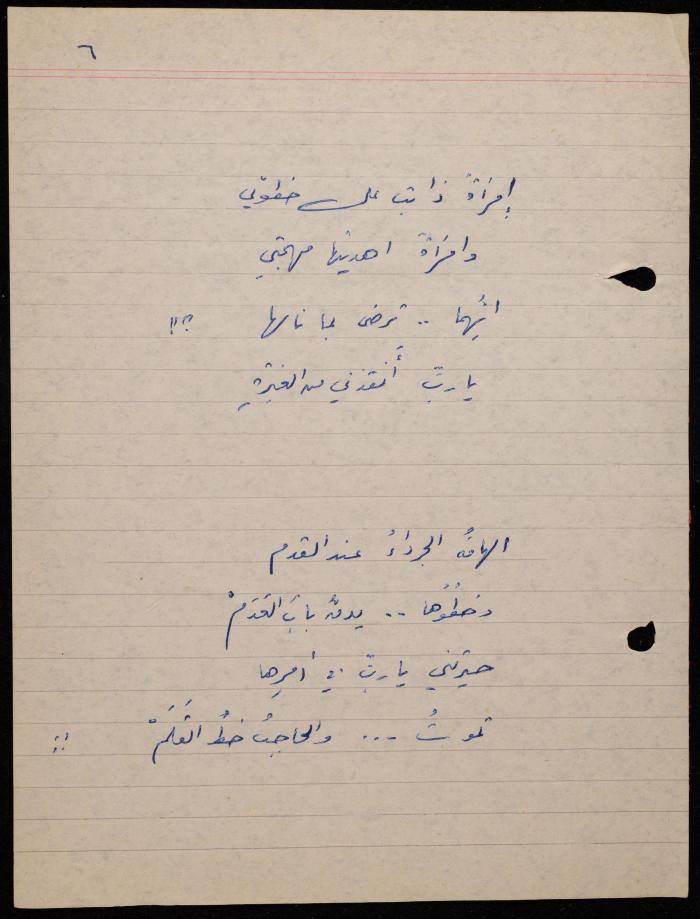 ٦
إمرَأةٌ ذابت على خطوتي
وامرَأة اهديتها مهجتي
انَّهما .. ترضى بما نالها ؟!!
ياربّ أَنقذني من الغيرَةِ
الجرداءُ عند القدم
وخطُوُها .. يدقّ بابَ القَدَمْ
حيّرتني ياربّ في أمرِها
تموتُ ... والحاجبُ خطُّ القَلَمْ !!